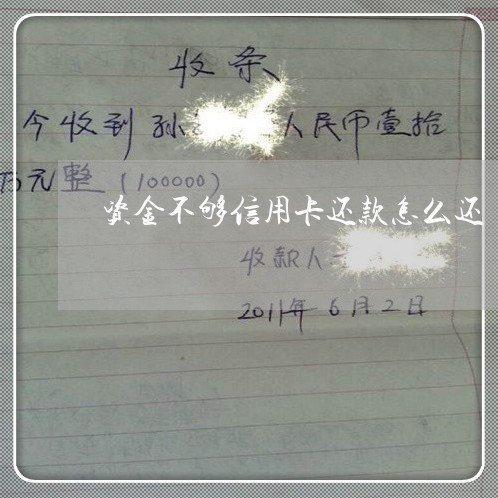 收条
今收到孙 人民币壹拾
万元整(100000)
资金不够信用卡还款怎么还
收款人
2011年6月2日